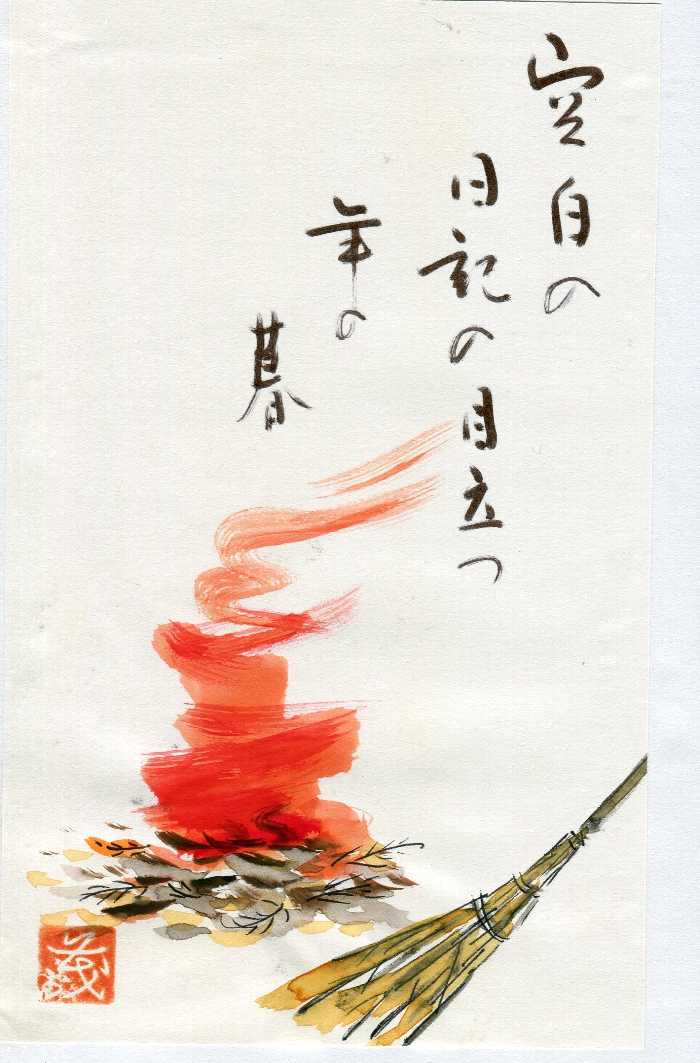 空白の
日記の目立つ
年の
暮